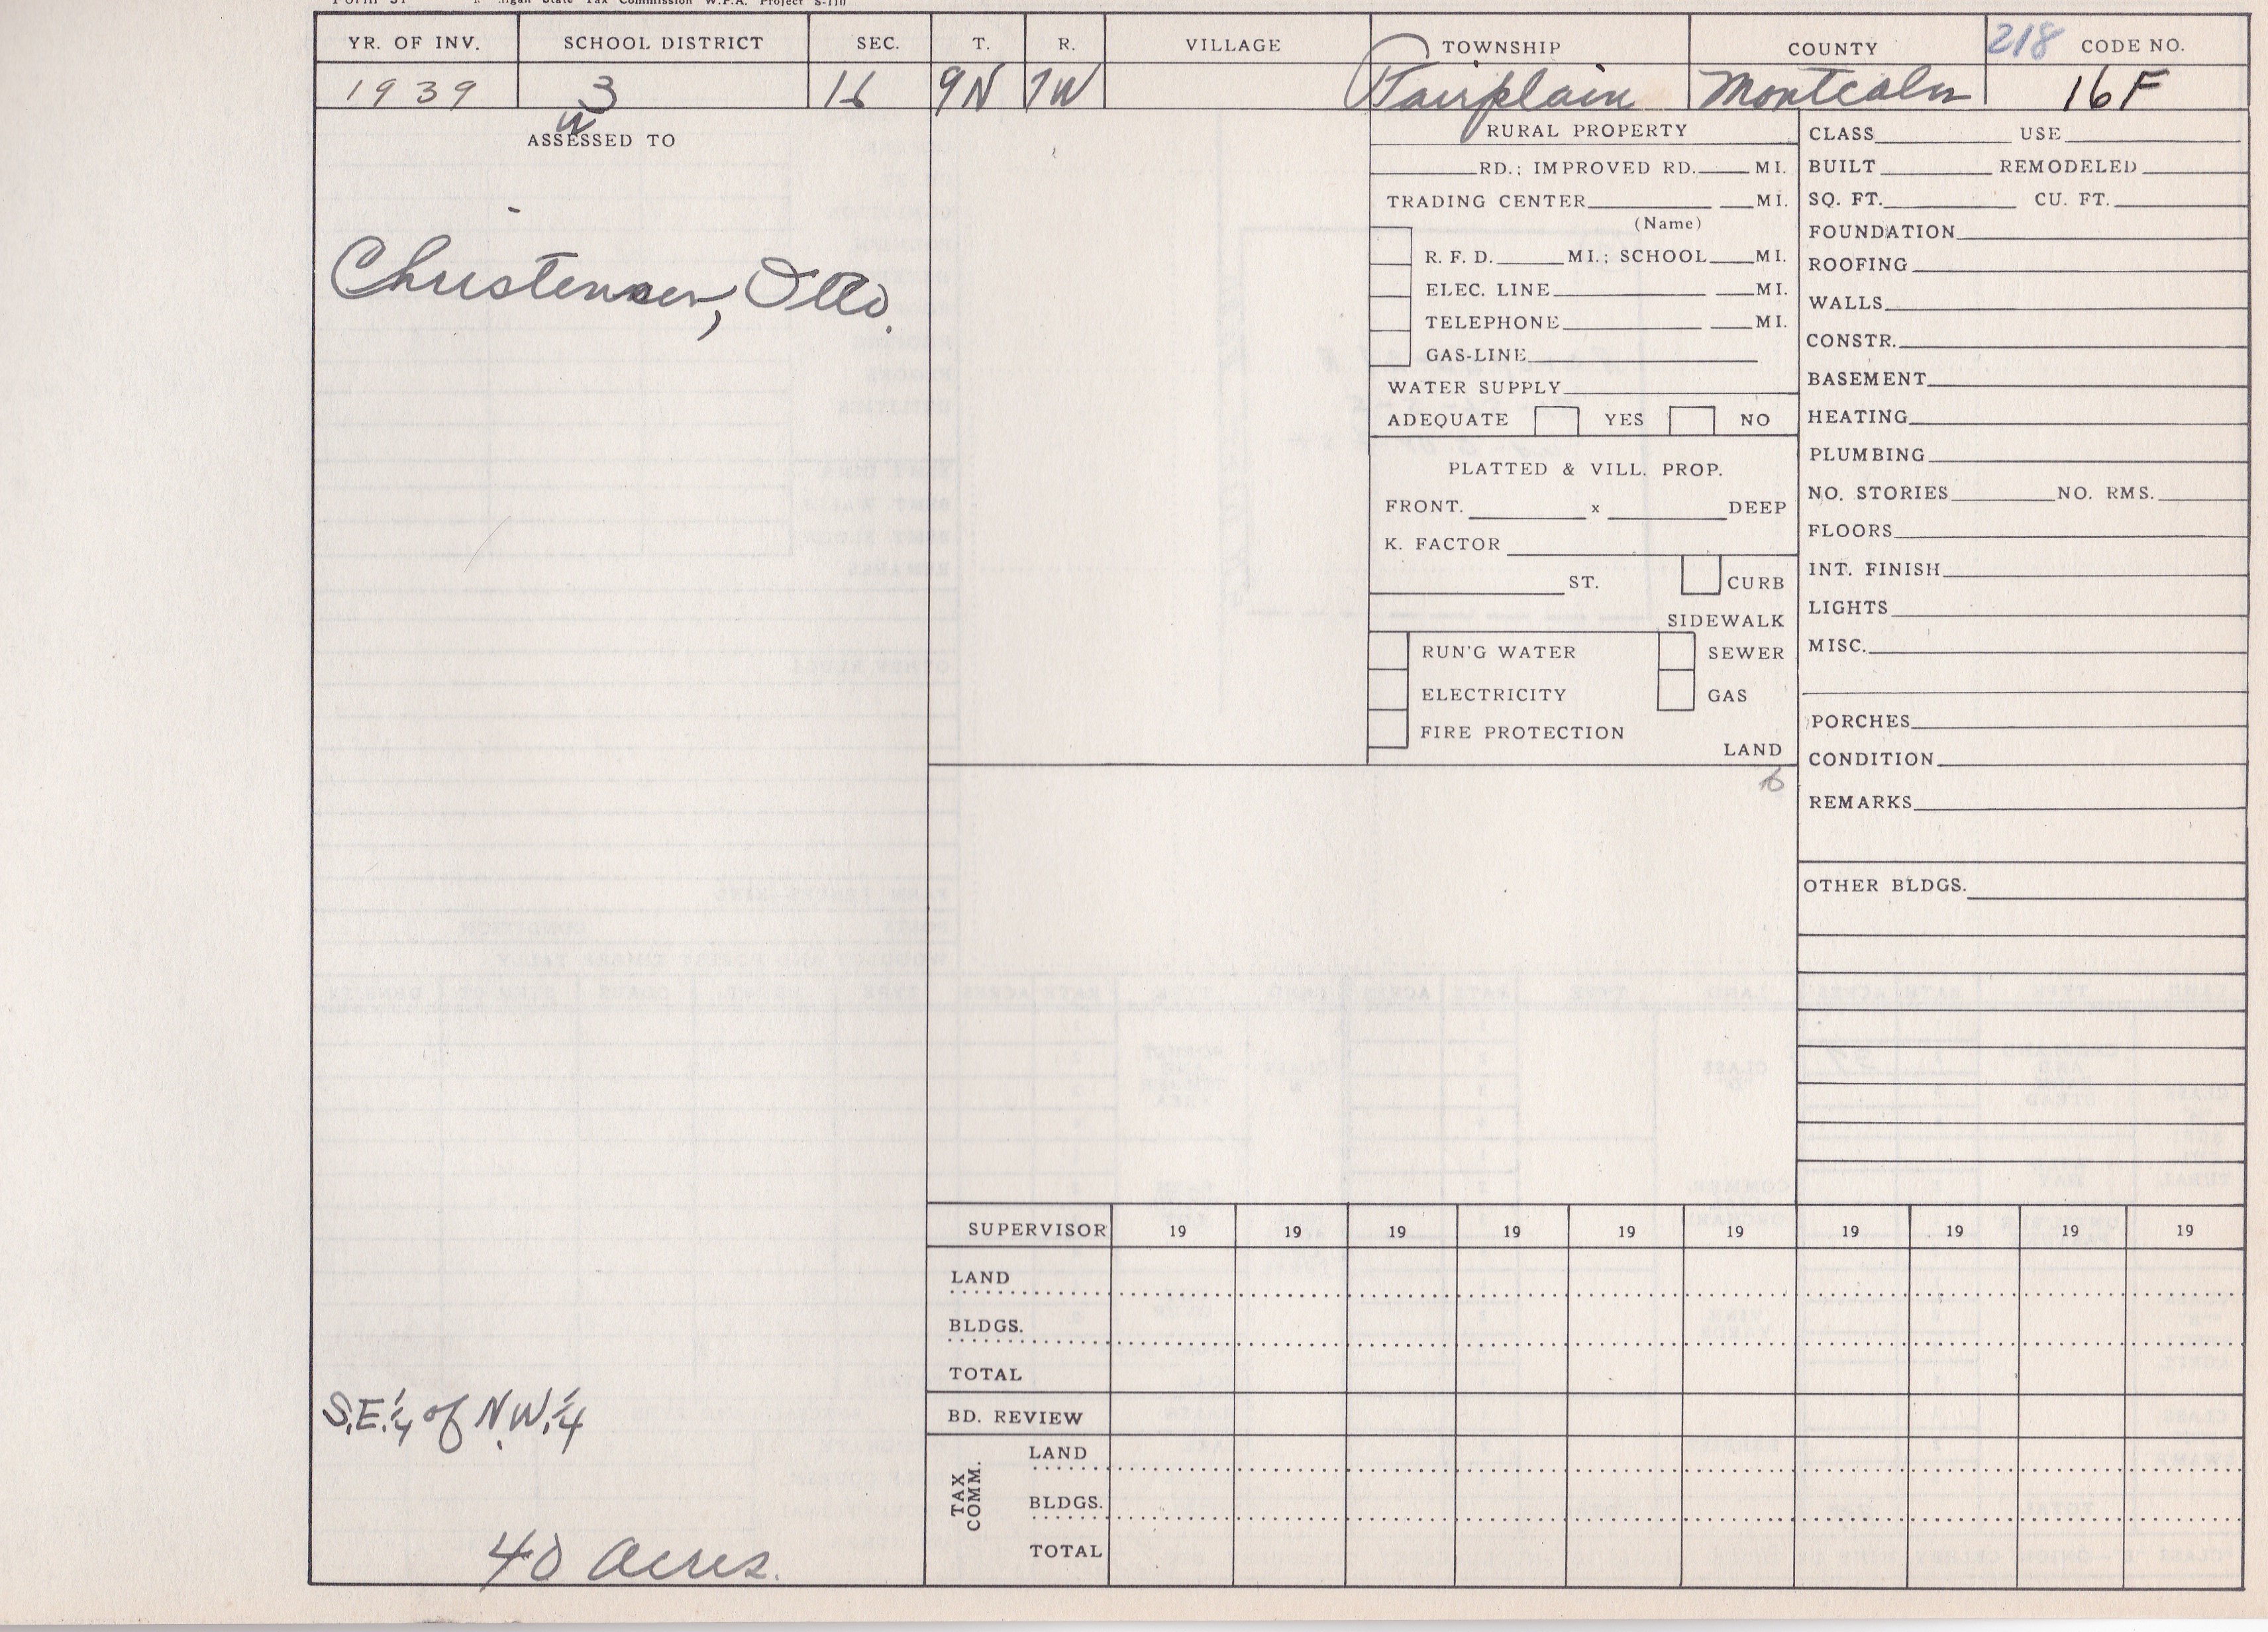 Tax Commission W.P.A. Project S-110
YR. OF INV. SCHOOL DISTRICT SEC. T. R. VILLAGE TOWNSHIP COUNTY 218 CODE NO.
1939 3 16 9N 7W Fairplain Montcalm 16F
W
ASSESSED TO
Christensen, Otto.
S.E.1/4 of N.W.1/4
40 acres.
RURAL PROPERTY
RD.; IMPROVED RD. MI.
TRADING CENTER MI.
(Name)
R. F. D. MI.; SCHOOL MI.
ELEC. LINE MI.
TELEPHONE MI.
GAS-LINE
WATER SUPPLY
ADEQUATE YES NO
PLATTED & VILL. PROP.
FRONT. x DEEP
K. FACTOR
ST. CURB
SIDEWALK
RUN'G WATER SEWER
ELECTRICITY GAS
FIRE PROTECTION
LAND
CLASS USE
BUILT REMODELED
SQ. FT. CU. FT.
FOUNDATION
ROOFING
WALLS
CONSTR.
BASEMENT
HEATING
PLUMBING
NO. STORIES NO. RMS.
FLOORS
INT. FINISH
LIGHTS
MISC.
PORCHES
CONDITION
REMARKS
OTHER BLDGS.
SUPERVISOR 19 19 19 19 19 19 19 19 19 19
LAND
BLDGS.
TOTAL
BD. REVIEW
TAX COMM.
LAND
BLDGS.
TOTAL